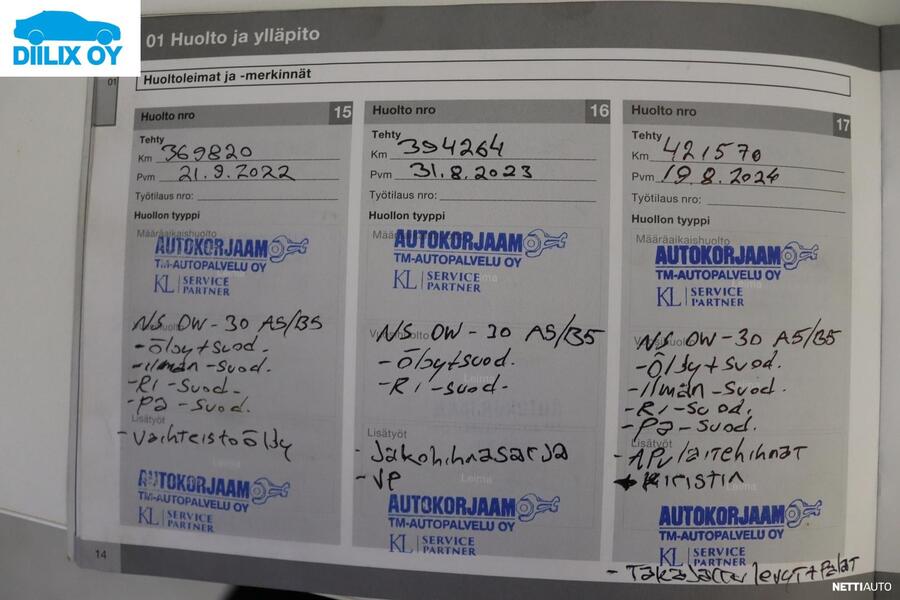 DIILIX OY
01 Huolto ja ylläpito
01
Huoltoleimat ja -merkinnät
Huolto nro 15
Tehty
Km 369820
Pvm 21.9.2022
Työtilaus nro:
Huollon tyyppi
Määräaikaishuolto
AUTOKORJAAMO
TM-AUTOPALVELU OY
KL SERVICE
PARTNER
NS 0W-30 A5/B5
-Öljy+suod.
-ilman-suod.
-Ri-suod.
-Pa-suod.
Lisätyöt
-Vaihteistoöljy
Leima
AUTOKORJAAMO
TM-AUTOPALVELU OY
KL SERVICE
PARTNER
14
Huolto nro 16
Tehty
Km 394264
Pvm 31.8.2023
Työtilaus nro:
Huollon tyyppi
AUTOKORJAAMO
TM-AUTOPALVELU OY
KL SERVICE
PARTNER
Leima
NS 0W-30 A5/B5
-Öljy+suod.
-Ri-suod.
Leima
Lisätyöt
-Jakohihnasarja
-VP
Leima
AUTOKORJAAMO
TM-AUTOPALVELU OY
KL SERVICE
PARTNER
Huolto nro 17
Tehty
Km 421570
Pvm 19.8.2024
Työtilaus nro:
Huollon tyyppi
Määräaikaishuolto
AUTOKORJAAMO
TM-AUTOPALVELU OY
KL SERVICE
PARTNER
Leima
NS 0W-30 A5/B5
-Öljy+suod.
-ilman-suod.
-Ri-suod.
-Pa-suod.
Lisätyöt
-APulaitehihnat
+Kiristin
Leima
AUTOKORJAAMO
TM-AUTOPALVELU OY
KL SERVICE
PARTNER
-Takajarru levyt+Palat
NETTIAUTO